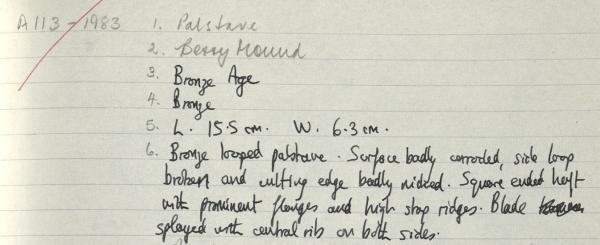 A113-1983 1. Palstave
2. Berry Mound
3. Bronze Age
4. Bronze
5. L. 15.5 cm. W. 6.3 cm.
6. Bronze looped palstave. Surface badly corroded, side loop
broken and cutting edge badly nicked. Square ended heft
with prominent flanges and high stop ridges. Blade
splayed with central rib on both sides.